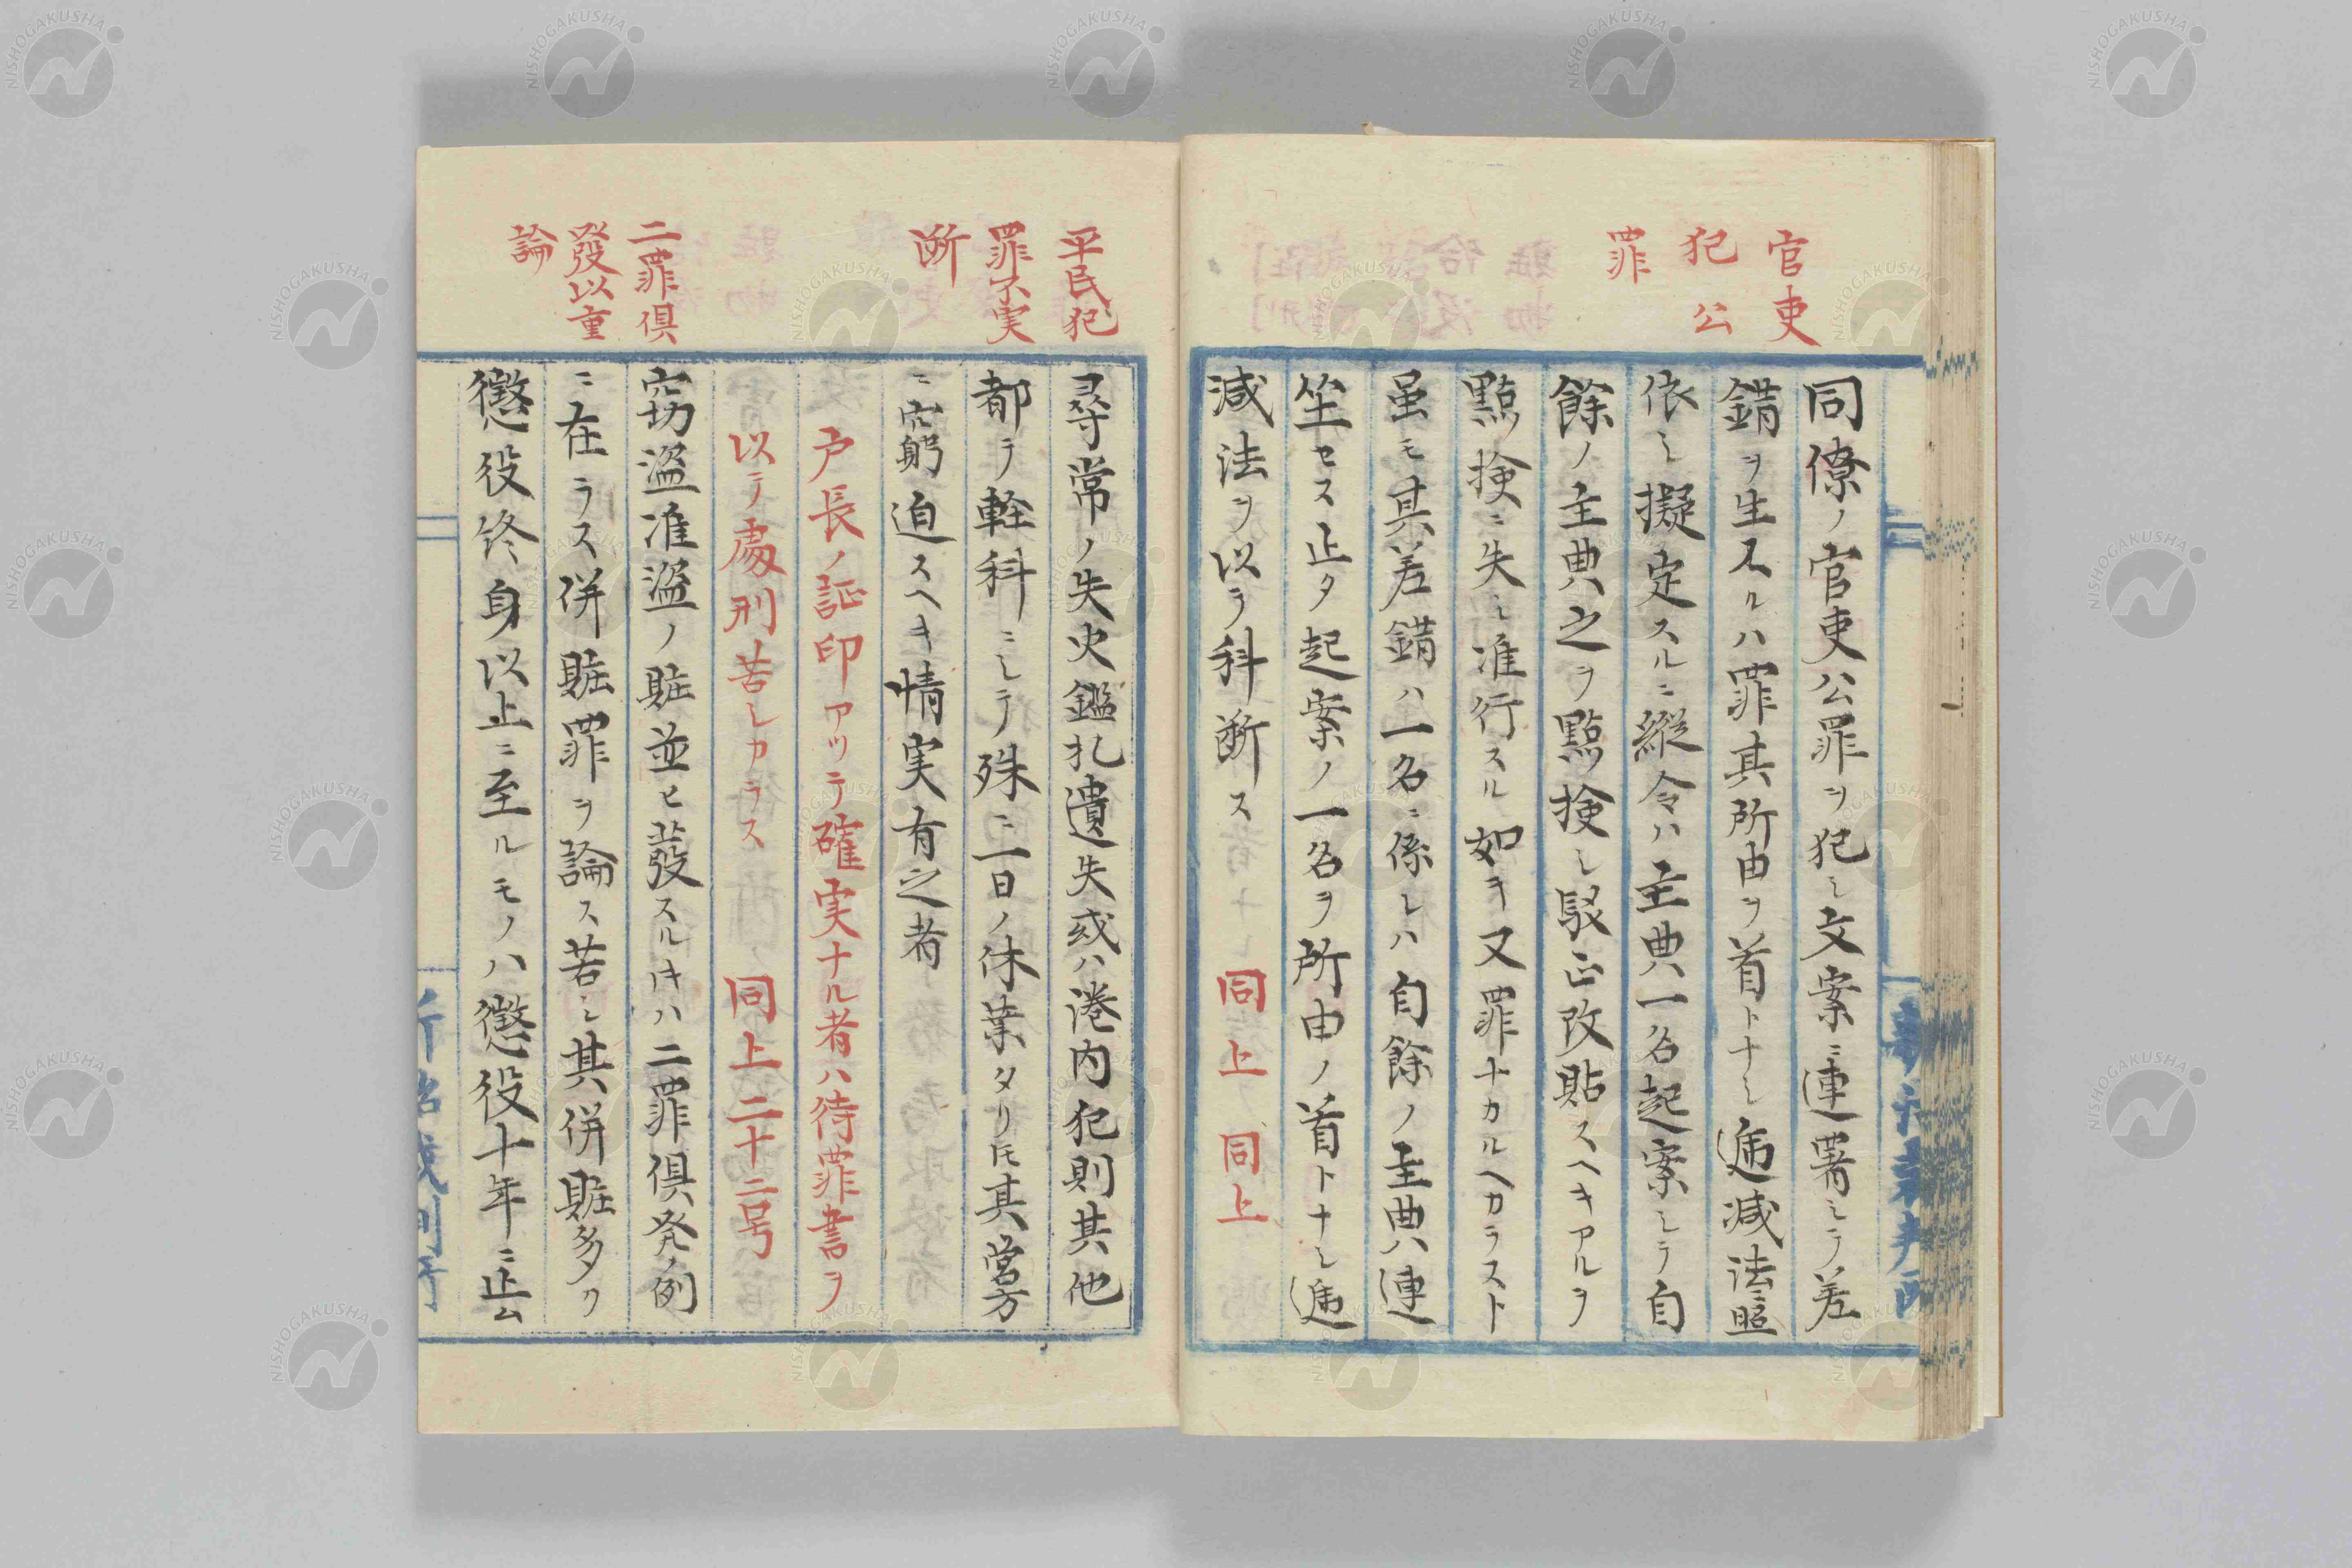 官吏
犯公
罪
同僚ノ官吏公罪ヲ犯シ文案ニ連署シテ差
錯ヲ生スルハ罪其所由ヲ首トナシ逓減法ニ照
依シ擬定スルニ縦令ハ主典一名起案シテ自
餘ノ主典之ヲ點検シ駁正改貼スヘキアルヲ
點検ニ失シ准行スル如キ又罪ナカルヘカラスト
虽モ其差錯ハ一名ニ係レハ自餘ノ主典ハ連
坐セス止タ起案ノ一名ヲ所由ノ首トナシ逓
減法ヲ以テ科断ス 同上 同上
平民犯
罪不実
断
尋常ノ失火鑑札遺失或ハ港内犯則其他
都テ軽科ニシテ殊ニ一日ノ休業タリ𪜈其営方
ニ窮迫スヘキ情実有之者
戸長ノ証印アツテ確実ナル者ハ待罪書ヲ
以テ處刑苦シカラス 同上二十二号
二罪俱
發以重
論
窃盗准盗ノ賍並ヒ發スルキハ二罪俱発ノ例
ニ在ラス併賍罪ヲ論ス若シ其併賍多ク
懲役終身以上ニ至ルモノハ懲役十年ニ止ム
NISHOGAKUSHA